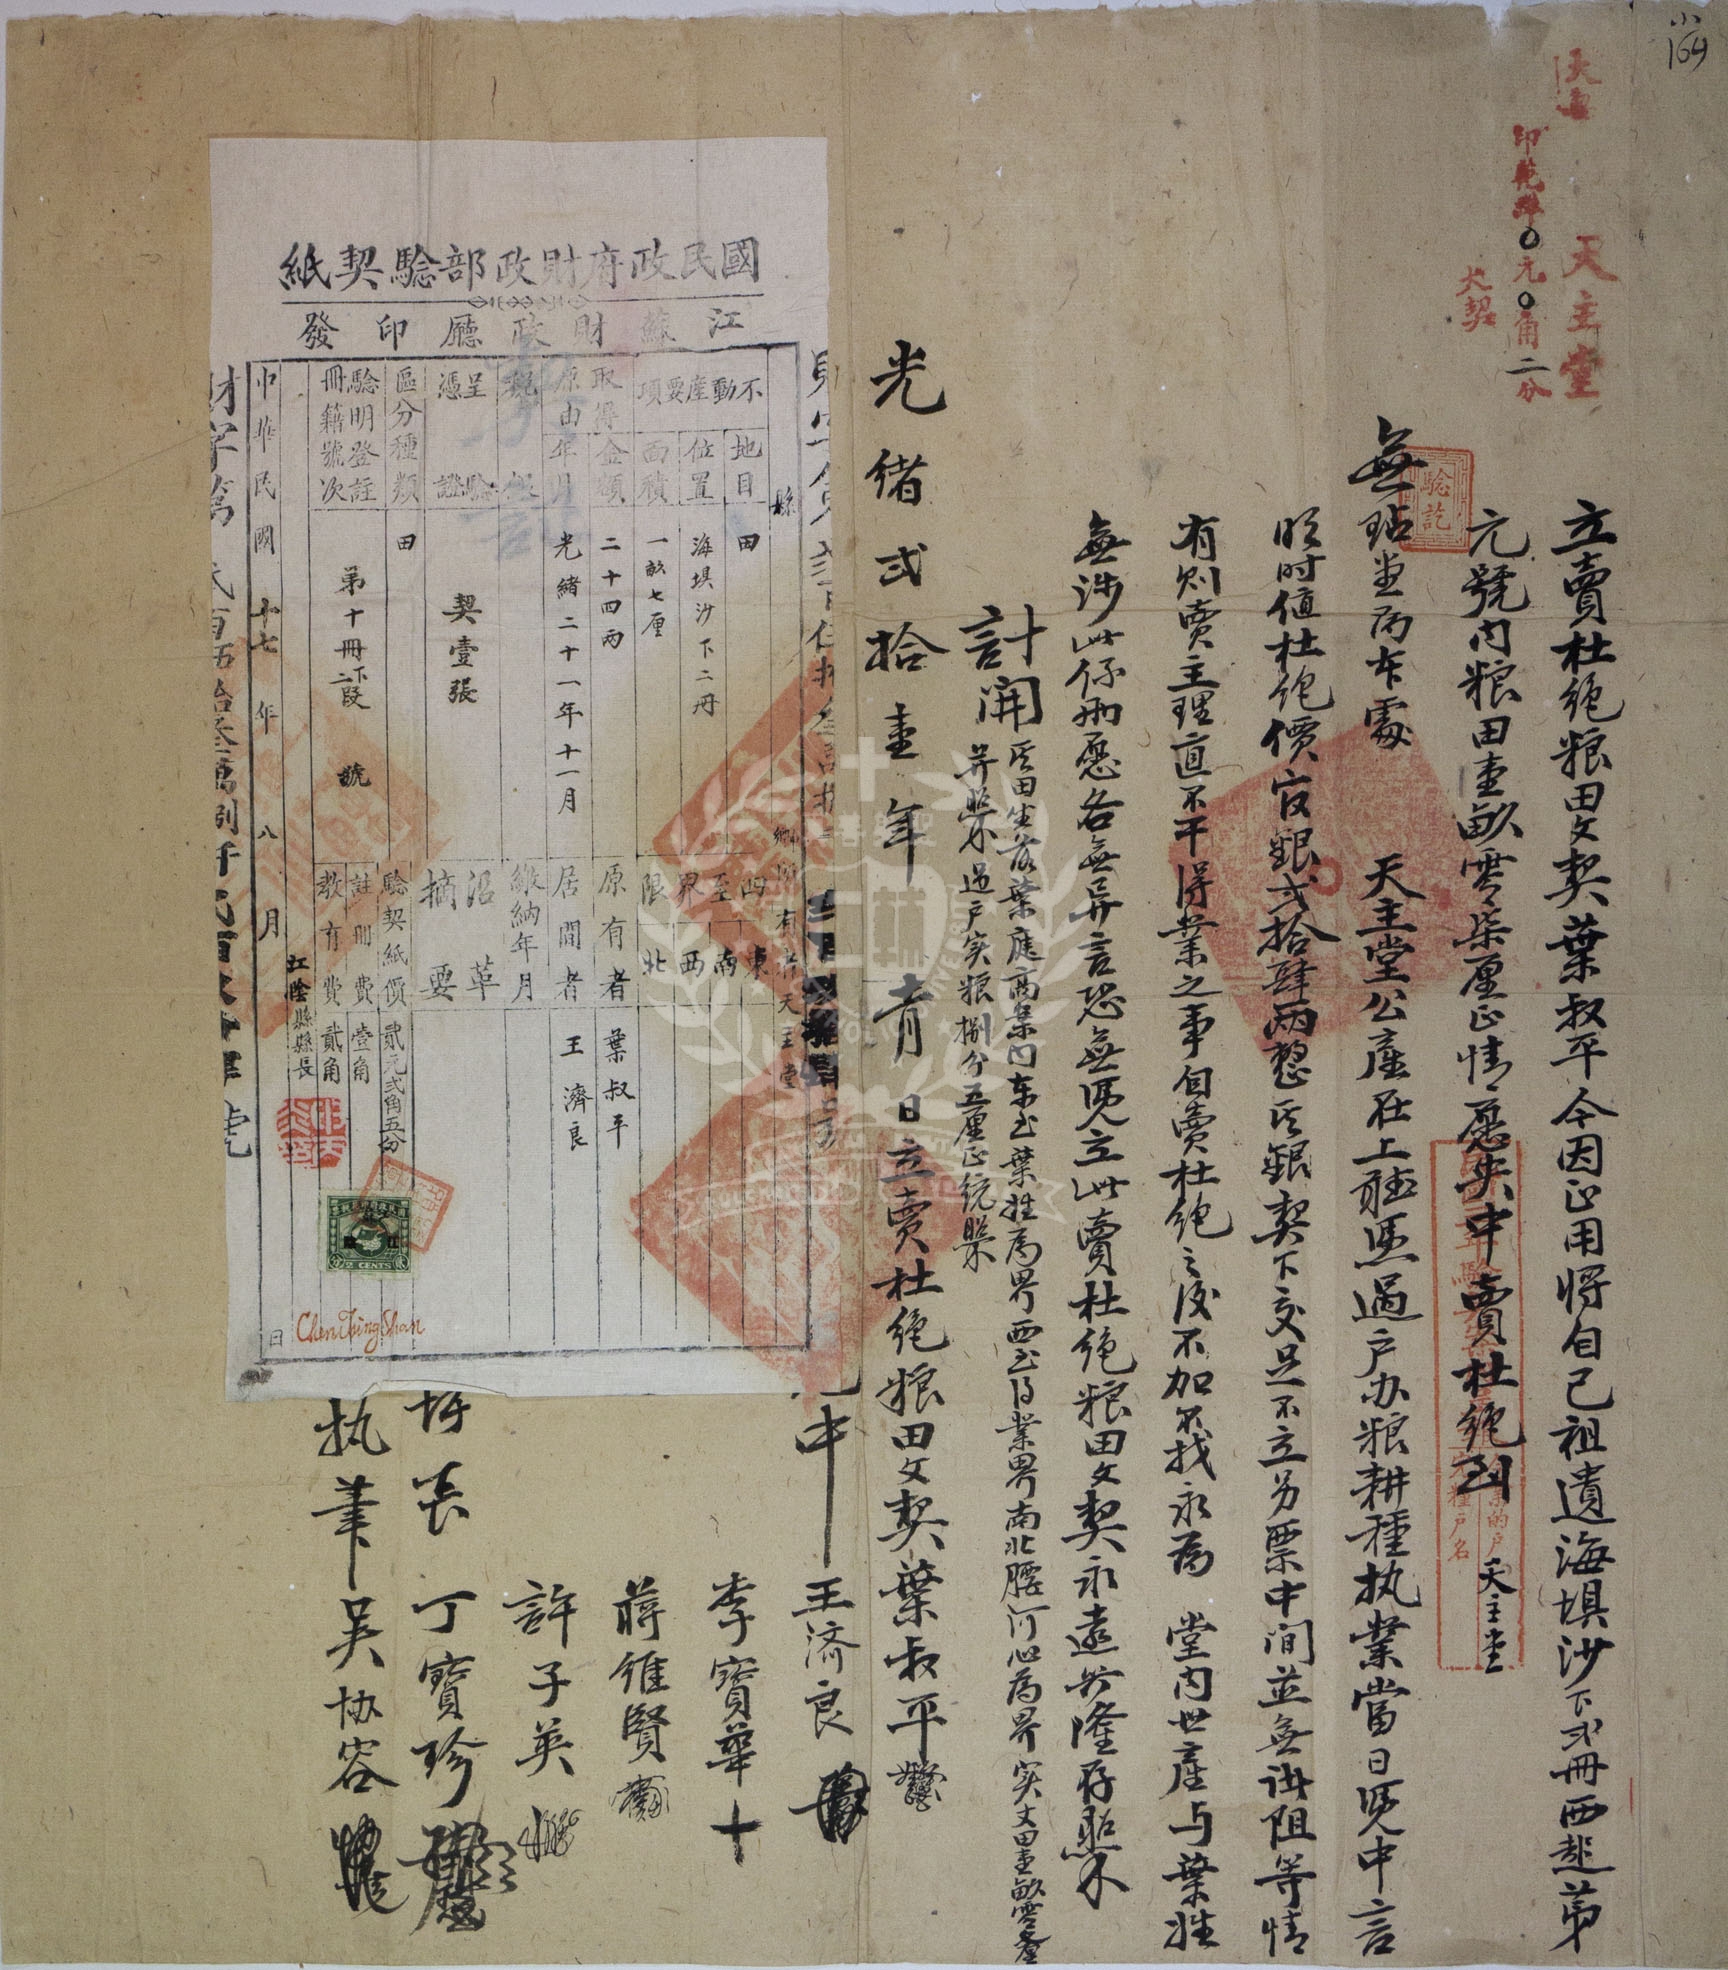 164
天主堂
印花準0元0角二分
大契
驗訖
立賣杜絕粮田文契葉叔平今因正用將自己祖遺海埧沙下弍冊西赴第
元號内粮田壹畝零柒厘正情愿央中賣杜絕到
天主堂
無玷堂為在處 天主堂公產在上聽憑過户办粮耕種执業當日凭中言
照时值杜絕價官銀弍拾肆兩整其銀契下交足不立另票中间並無謀阻等情
有则賣主理直不干得業之事自賣杜絕之後不加不找永為 堂内世產与葉姓
無涉此係两愿各無异言恐無凭立此賣杜絕粮田文契永遠兴隆存照
計開 其田坐落葉庭高案内东至葉姓為界西至得業界南北腰河心為界实丈田壹畝零柒
并照过户实粮捌分五厘正统照
光绪弍拾壹年 日立賣杜絕粮田文契葉叔平
中 王济良
李寳華 十
蔣維賢
許子英
圩長 丁寳珍
执筆 吴协容
國民政府財政部驗契紙
江蘇財政廳印發
縣 鄉 有者 天主堂
不動產要項 地目 田
位置 海埧沙下二冊
面積 一畝七厘
四至界限 東 南 西 北
取得原由 金額 二十四兩
年月 光緒二十一年十一月
原有者 葉叔平
居間者 王濟良
繳納年月
呈驗憑證 契壹張
沿革摘要
區分種類 田
驗明登註冊籍號次 第十冊下二段 號
驗契紙價 貳元弍角五分
註冊費 壹角
教育費 貳角
中華民國十七年八月 日
江陰縣縣長
2 CENTS
Chen Tsing Shan